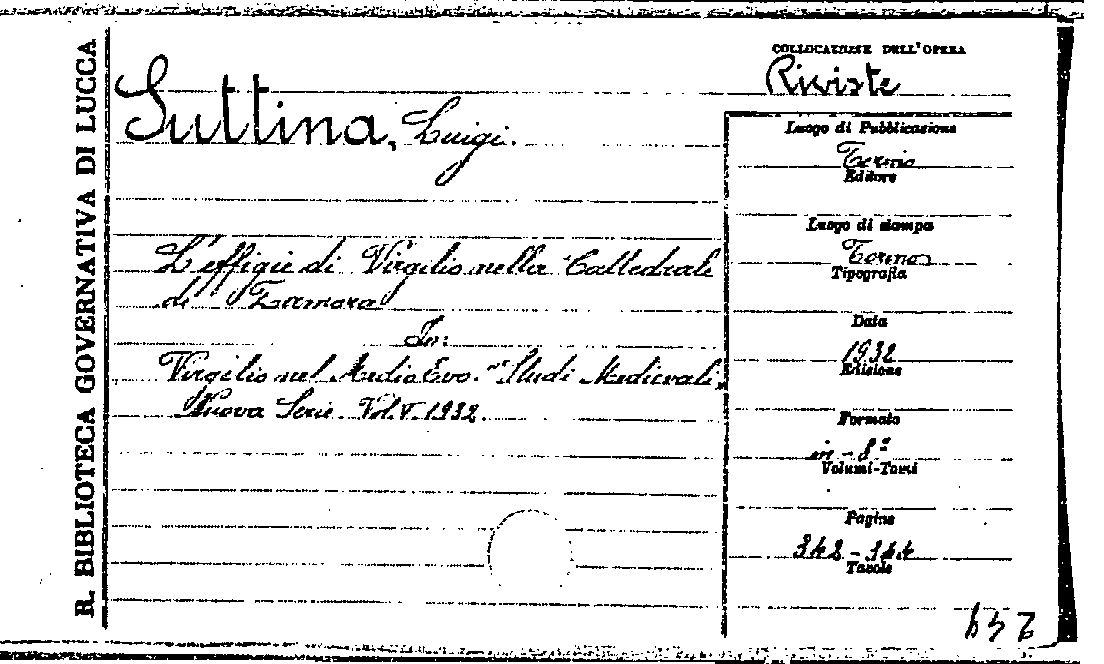 R. BIBLIOTECA GOVERNATIVA DI LUCCA
COLLOCAZIONE DELL'OPERA
Riviste
Suttina, Luigi.
L'effigie di Virgilio nella Cattedrale
di Zamora
In:
Virgilio nel Medio Evo. "Studi Medievali,,
Nuova Serie. Vol. V. 1932.
Luogo di Pubblicazione
Torino
Editore
Luogo di stampa
Torino
Tipografia
Data
1932
Edizione
Formato
in-8º
Volumi-Tomi
Pagine
342-344
Tavole